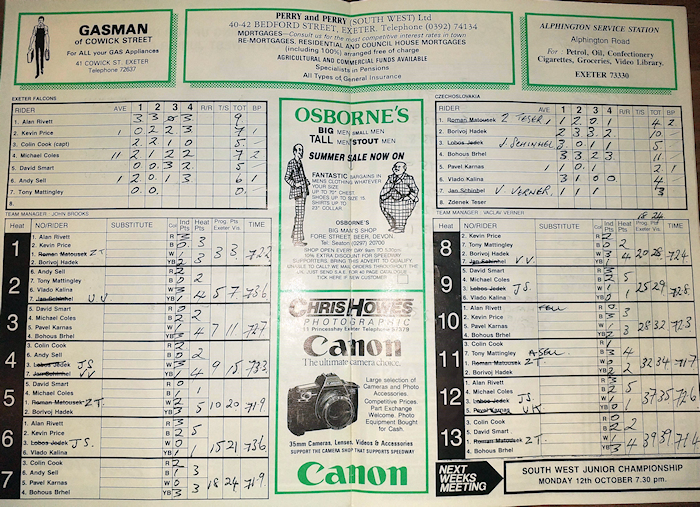 GASMAN
of COWICK STREET
For ALL your GAS Appliances
41 COWICK ST. EXETER
Telephone 72637
PERRY and PERRY (SOUTH WEST) Ltd
40-42 BEDFORD STREET, EXETER. Telephone (0392) 74134
MORTGAGES—Consult us for the most competitive interest rates in town
RE-MORTGAGES, RESIDENTIAL AND COUNCIL HOUSE MORTGAGES
(including 100%) arranged free of charge
AGRICULTURAL AND COMMERCIAL FUNDS AVAILABLE
Specialists in Pensions
All Types of General Insurance
ALPHINGTON SERVICE STATION
Alphington Road
For : Petrol, Oil, Confectionery
Cigarettes, Groceries, Video Library.
EXETER 73330
EXETER FALCONS
RIDER AVE 1 2 3 4 R/R T/S TOT BP
1. Alan Rivett 3 3 0 3 9
2. Kevin Price 1 0 2 2 3 7 1
3. Colin Cook (capt) 2 2 1 0 5
4. Michael Coles 11 2 1 2 2 7 2
5. David Smart 0 0 3 2 5
6. Andy Sell 1 2 0 1 3 6 1
7. Tony Mattingley 0 0 0
8.
TEAM MANAGER : JOHN BROOKS
Heat NO/RIDER SUBSTITUTE Col Ind Pts Heat Pts Prog. Pts Exeter Vis. TIME
1
1. Alan Rivett R 3
2. Kevin Price B 0 3
1. Roman Matousek Z T. W 2
2. Borivoj Hadek YB 3 3 3 722
2
6. Andy Sell R 2
7. Tony Mattingley B 0 2
6. Vlado Kalina W 3
7. Jan Schinhel V V YB 1 4 5 7 736
3
5. David Smart R 0
4. Michael Coles B 2 2
5. Pavel Karnas W 1
4. Bohous Brhel YB 3 4 7 11 727
4
3. Colin Cook R 2
6. Andy Sell B 0 2
3. Lobos Jedek J S. W 3
7. Jan Schinhel V V YB 1 4 9 15 733
5
5. David Smart R 0
4. Michael Coles B 1 1
1. Roman Matousek Z T. W 2
2. Borivoj Hadek YB 3 5 10 20 719
6
1. Alan Rivett R 3
2. Kevin Price B 2 5
3. Lobos Jedek J S. W 0
6. Vlado Kalina YB 1 1 15 21 736
7
3. Colin Cook R 2
6. Andy Sell B 1 3
5. Pavel Karnas W 0
4. Bohous Brhel YB 3 3 18 24 719
OSBORNE'S
BIG MEN SMALL MEN
TALL MEN STOUT MEN
SUMMER SALE NOW ON
FANTASTIC BARGAINS IN
MENS CLOTHING WHATEVER
YOUR SIZE
UP TO 70" CHEST
SHOES UP TO SIZE 15
SHIRTS UP TO
23" COLLAR
OSBORNE'S
BIG MAN'S SHOP
FORE STREET, BEER, DEVON.
Tel: Seaton (0297) 20700
SHOP OPEN EVERY DAY 9am to 5.30pm
10% EXTRA DISCOUNT FOR SPEEDWAY
SUPPORTERS. BRING THIS ADVERT TO QUALIFY.
UNABLE TO CALL? WE MAIL ORDERS THROUGHOUT THE
JUST SEND S.A.E. FOR 40 PAGE CATALOGUE
TICK HERE IF SEW CUSTOMER
CHRIS HOLMES
PHOTOGRAPHIC
Canon
The ultimate camera choice.
Large selection of
Cameras and Photo
Accessories.
Competitive Prices.
Part Exchange
Welcome. Photo
Equipment Bought
for Cash.
35mm Cameras, Lenses, Videos & Accessories
SUPPORT THE CAMERA SHOP THAT SUPPORTS SPEEDWAY
Canon
CZECHOSLOVAKIA
RIDER AVE 1 2 3 4 R/R T/S TOT BP
1. Roman Matousek Z TESER
2. Borivoj Hadek 2 3 3 2 10
3. Lobos Jedek J SCHINHEL
4. Bohous Brhel 3 3 2 3 11
5. Pavel Karnas
6. Vlado Kalina 3 1 0 0 4
7. Jan Schinhel V. VERNER
8. Zdenek Teser
TEAM MANAGER : VACLAV VERNER
18 24
Heat NO/RIDER SUBSTITUTE Col Ind Pts Heat Pts TIME
8
2. Kevin Price
7. Tony Mattingley
2. Borivoj Hadek
7. Jan Schinhel V V. 4 20 28 724
9
5. David Smart
4. Michael Coles
3. Lobos Jedek J S.
6. Vlado Kalina 25 29 728
10
1. Alan Rivett FELL
2. Kevin Price
5. Pavel Karnas
4. Bohous Brhel 3 28 32 723
11
3. Colin Cook
7. Tony Mattingley A SELL
1. Roman Matousek Z T.
2. Borivoj Hadek 32 34 717
12
1. Alan Rivett
4. Michael Coles
3. Lobos Jedek J S.
5. Pavel Karnas V V. 37 35 726
13
3. Colin Cook
5. David Smart
1. Roman Matousek Z T.
4. Bohous Brhel 4 39 39 714
NEXT
WEEKS
MEETING
SOUTH WEST JUNIOR CHAMPIONSHIP
MONDAY 12th OCTOBER 7.30 pm.